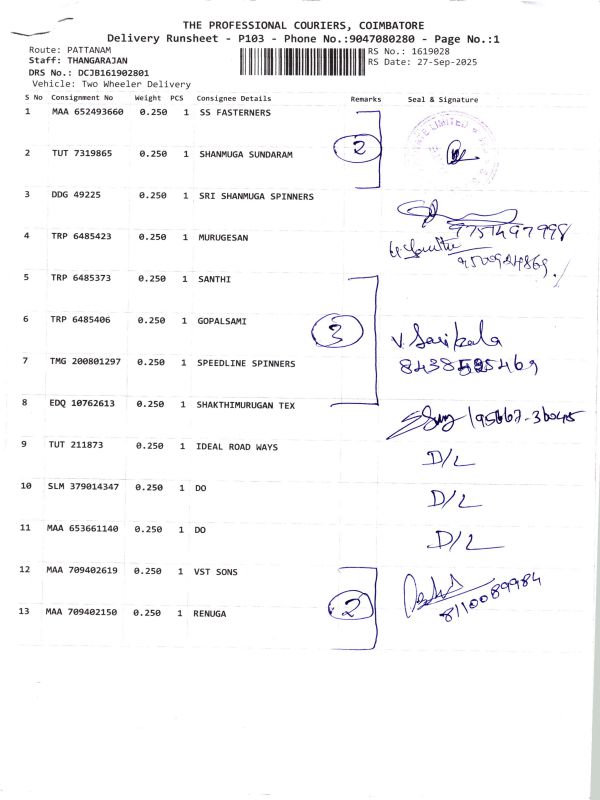 THE PROFESSIONAL COURIERS, COIMBATORE
Delivery Runsheet - P103 - Phone No.:9047080280 - Page No.:1
Route: PATTANAM RS No.: 1619028
Staff: THANGARAJAN RS Date: 27-Sep-2025
DRS No.: DCJB161902801
Vehicle: Two Wheeler Delivery
S No Consignment No Weight PCS Consignee Details Remarks Seal & Signature
1 MAA 652493660 0.250 1 SS FASTERNERS
2
2 TUT 7319865 0.250 1 SHANMUGA SUNDARAM
3 DDG 49225 0.250 1 SRI SHANMUGA SPINNERS
9751497998
4 TRP 6485423 0.250 1 MURUGESAN
5 TRP 6485373 0.250 1 SANTHI
6 TRP 6485406 0.250 1 GOPALSAMI
3 V. Sasikala
7 TMG 200801297 0.250 1 SPEEDLINE SPINNERS
8 EDQ 10762613 0.250 1 SHAKTHIMURUGAN TEX
9 TUT 211873 0.250 1 IDEAL ROAD WAYS D/L
10 SLM 379014347 0.250 1 DO D/L
11 MAA 653661140 0.250 1 DO D/L
12 MAA 709402619 0.250 1 VST SONS
2 8110089984
13 MAA 709402150 0.250 1 RENUGA